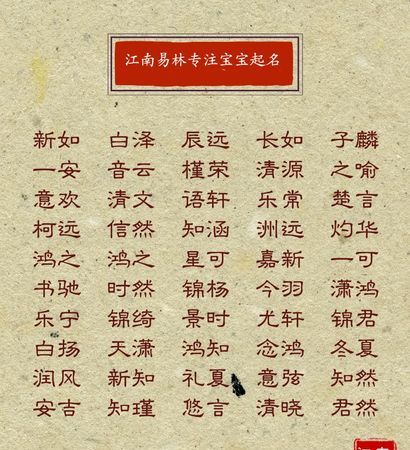 江南易林专注宝宝起名
新如 白泽 辰远 长如 子麟
一安 音云 槿荣 清源 之喻
意欢 清文 语轩 乐常 楚言
柯远 信然 知涵 洲远 灼华
鸿之 鸿之 星可 嘉新 一可
书驰 时然 锦杨 今羽 潇鸿
乐宁 锦绮 景时 尤轩 锦君
白扬 天潇 鸿知 念鸿 冬夏
润风 新知 礼夏 意弦 知然
安吉 知瑾 悠言 清晓 君然